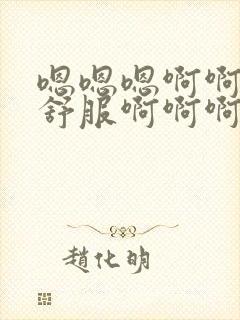 嗯嗯嗯啊啊
舒服啊啊啊
趙化明